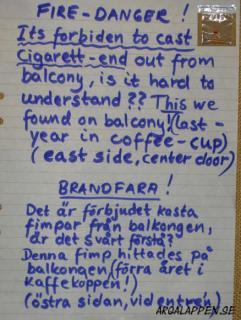 FIRE-DANGER !
Its forbiden to cast
Cigarett-end out from
balcony, is it hard to
understand ?? This we
found on balcony! (last -
year in coffee-cup)
( east side, center door)
BRANDFARA !
Det är förbjudet kasta
fimpar från balkongen,
är det svårt förstå?
Denna fimp hittades på
balkongen, (förra året i
Kaffekoppen!)
(östra sidan, vid entrén)
ARGALAPPEN.SE